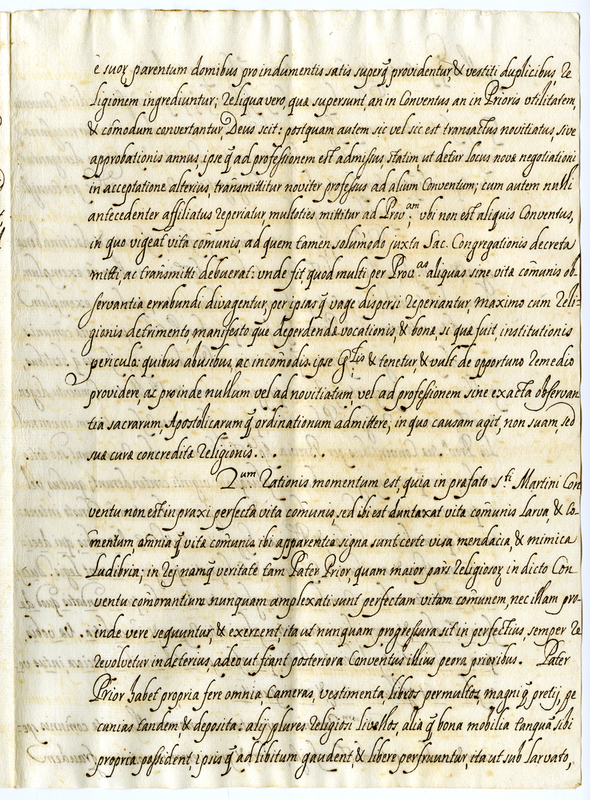 è suoꝝ parentum domibus pro indumentis satis superq̃ providentur, & vestiti duplicibus Re
ligionem ingrediuntur; Reliqua vero quæ supersunt, an in Conventus an in Prioris utilitatem,
& com̃odum convertantur, Deus scit: postquam autem sic vel sic est transactus novitiatus, sive
approbationis annus, ipse q̃ ad professionem est admissus statim, ut detur locus novæ negotiationi
in acceptatione alterius, transmittitur noviter professus ad alium Conventum; cum autem nulli
antecedenter affiliatus reperiatur multoties mittitur ad Prov.am; ubi non est aliquis Conventus,
in quo vigeat vita com̃unis, ad quem tamen solum̃odo juxta Sac. Congregationis decreta
mitti, ac transmitti debuerat: unde fit quod multi per Provi.as aliquas sine vitæ com̃unis ob-
servantia errabundi divagentur, per ipsas q̃ vage dispersi reperiantur, maximo cum Reli-
gionis detrimento manifesto que deperdendæ vocationis, & bonæ, si quæ fuit, institutionis
periculo: quibus abusibus, ac incom̃odis ipse G.lis & tenetur, & vult de opportuno remedio
providere, ac proinde nullum vel ad novitiatum, vel ad professionem sine exacta observan
tia sacrarum, Apostolicarum q̃ ordinationum admittere; in quo causam agit, non suam, sed
suæ curæ concreditæ Religionis . . .
2.um Rationis momentum est, quia in præfato S.ti Martini Con
ventu non est in praxi perfecta vita com̃unis, sed ibi est duntaxat vitæ com̃unis larva, & co-
m̃entum, omnia q̃ vitæ com̃unis ibi apparentia signa sunt certe visa mendacia, & mimica
Ludibria; in rej namq̃ veritate tam Pater Prior quam maior pars Religiosoꝝ in dicto Con
ventu com̃orantium nunquam amplexati sunt perfectam vitam com̃unem, nec illam pro-
inde vere sequuntur, & exercent, ita ut nunquam progressura sit in perfectius, semper re
revolvetur in deterius, adeo ut fiant posteriora Conventus illius peora prioribus. Pater
Prior habet propria fere omnia, Cameras, vestimenta libros permultos, magniq̃ pretij, pe
cunias tandem & deposita: alij plures Religiosi Livellos, alia q̃ bona mobilia tanquã sibi
propria possident, ipsis q̃ ad libitum gaudent, & libere perfruuntur, ita ut sub larvato,